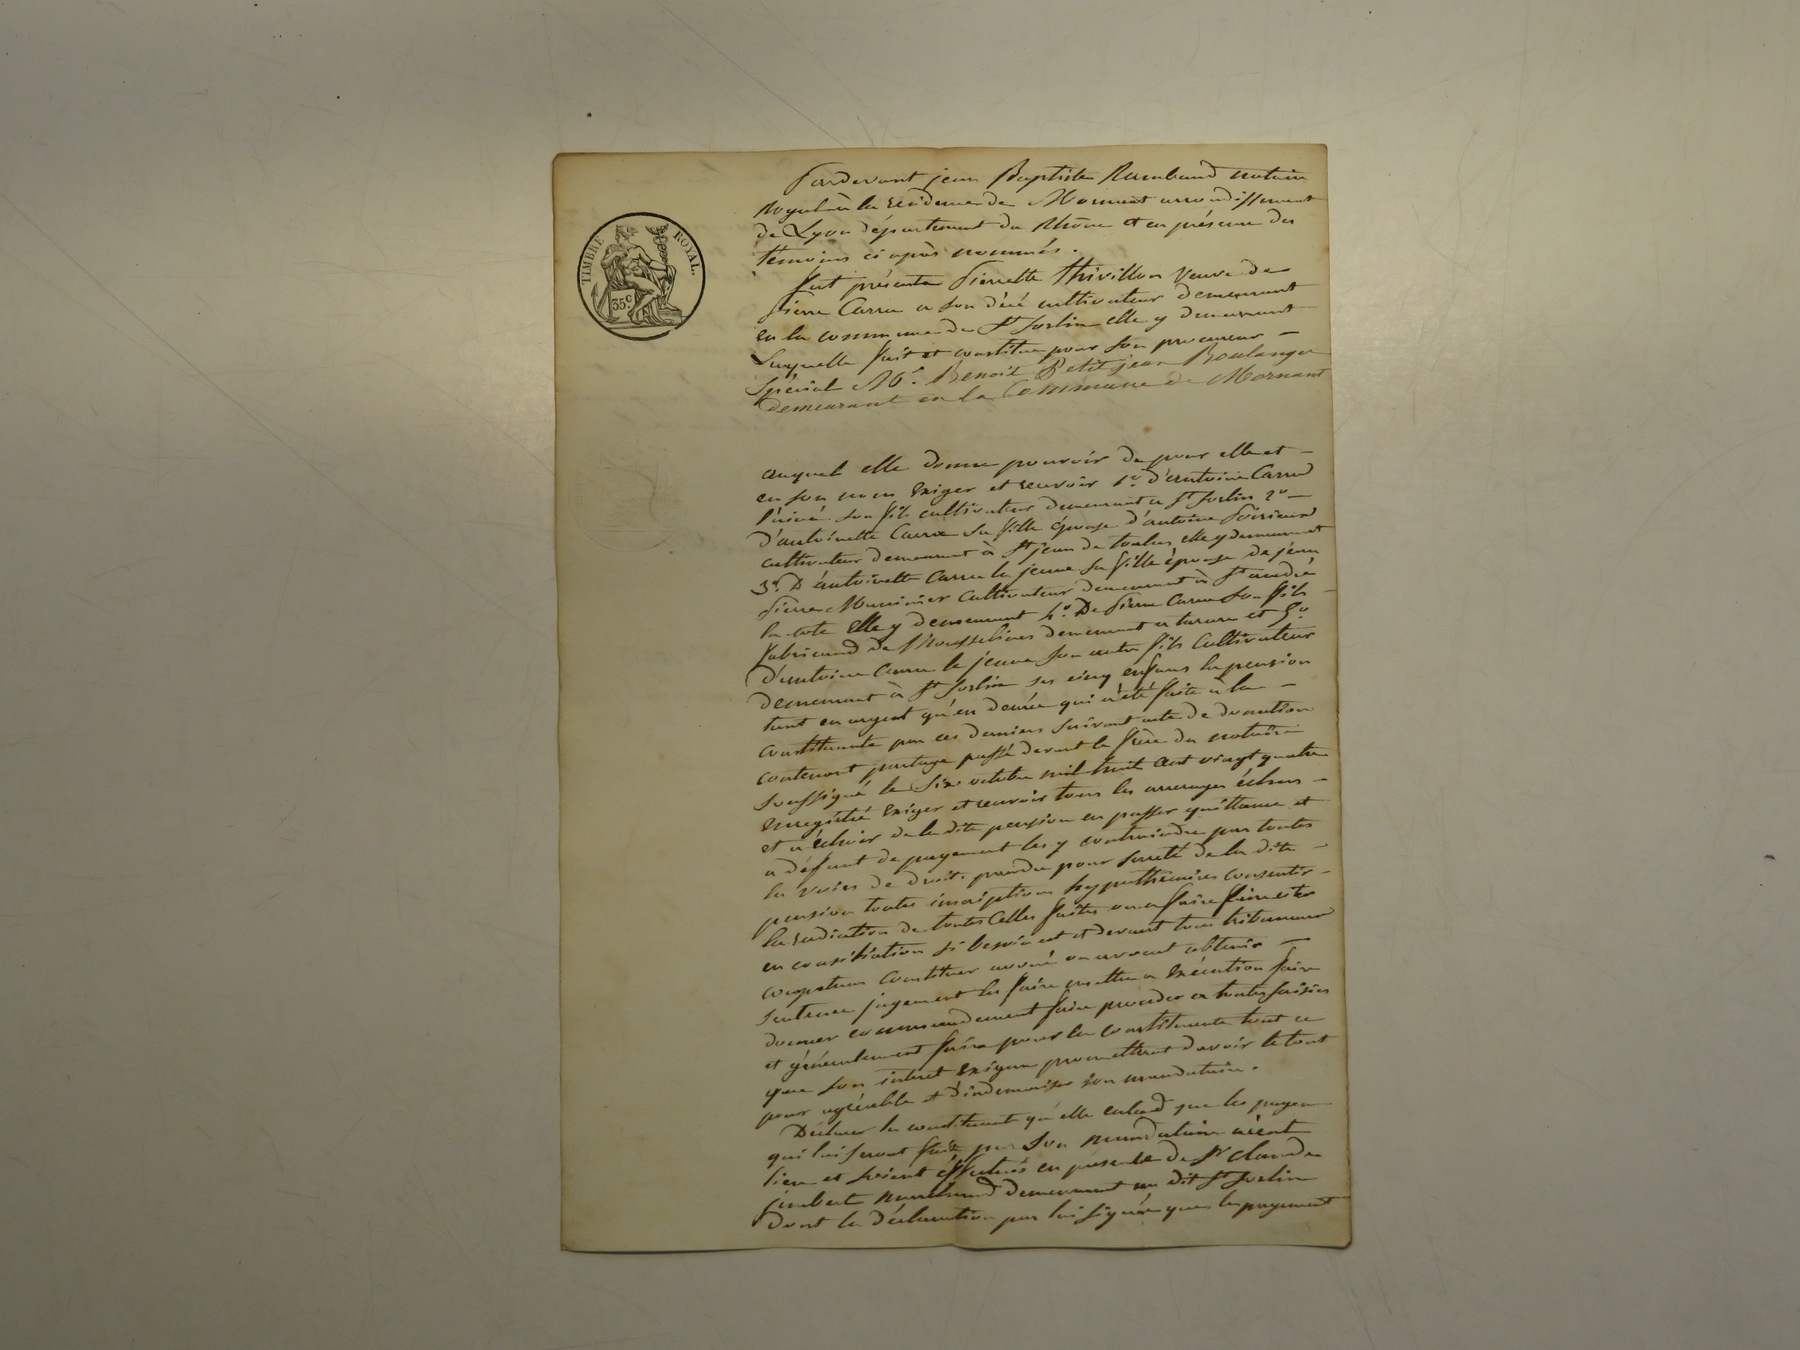 TIMBRE ROYAL.
35 c
Pardevant jean Baptiste Rambaud notaire
Royal à la résidence de Mornant arrondissement
de Lyon département du Rhône et en présence des
temoins ci après nommés.
fut présente Pierrette thivillon veuve de
Pierre Carra a son décé cultivateur demeurant
en la commune de St Sorlin elle y demeurant
Laquelle fait et constitue pour son procureur
Spécial Mr. Benoit Petitjean Boulanger
demeurant en la Commune de Mornant
auquel elle donne pouvoir de pour elle et
en son nom Exiger et recevoir 1o. d'antoine Carra
l'ainé son fils cultivateur demeurant a St Sorlin 2o
d'antoinette Carra sa fille épouse d'antoine
cultivateur demeurant à St jean de toulas elle y demeurant
3o. D'antoinette Carra la jeune sa fille épouse de jean
Pierre Cultivateur demeurant à St andré
la cote Elle y demeurant 4o. De Pierre Carra son fils
fabricand de Mousselines demeurant a tarare et 5o
D'antoine Carra le jeune son autre fils Cultivateur
demeurant à St Sorlin ses cinq enfans la pension
tant en argent qu'en denrée qui a été faite à la
constituante par ces derniers suivant acte de donation
contenant partage passé devant le Père du notaire
soussigné le Six octobre mil huit cent vingt quatre
enregistré Exiger et recevoir tous les arrerages échus
et a échoir de la dite pension en passer quittance et
a défaut de payement les y contraindre par toutes
les voies de droit. prendre pour sureté de la dite
pension toutes inscriptions hypothécaires consentir
la radiation de toutes Celles faites ou a faire
en conciliation si besoin est et devant tous tribunaux
competens Constituer avoué ou avocat obtenir
sentence jugement les faire mettre a Exécution faire
donner commandement faire proceder a toutes saisies
et généralement faire pour la constituante tout ce
que son interet Exigera promettant d'avoir le tout
pour agréable et d'indemniser son mandataire.
Déclare la constituant qu'elle entend que les payemens
qui lui seront faits par Son mandataire aient
lieu et soient éffectués en présence de Sr Claude
jimbert Marchand demeurant au dit St Sorlin
dont la déclaration par lui signée que les payement